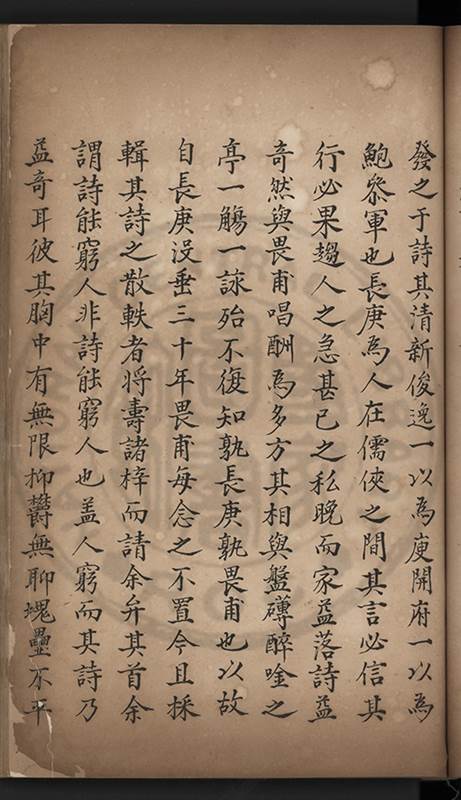 發之于詩其清新俊逸一以為庾開府一以為
鮑叅軍也長庚為人在儒俠之間其言必信其
行必果趨人之急甚已之私晚而家益落詩益
奇然與畏甫唱酬為多方其相與盤礴醉唫之
亭一觴一詠殆不復知孰長庚孰畏甫也以故
自長庚沒垂三十年畏甫每念之不置今且採
輯其詩之散軼者将壽諸梓而請余弁其首余
謂詩能窮人非詩能窮人也盖人窮而其詩乃
益奇耳彼其胸中有無限抑欝無聊塊壘不平